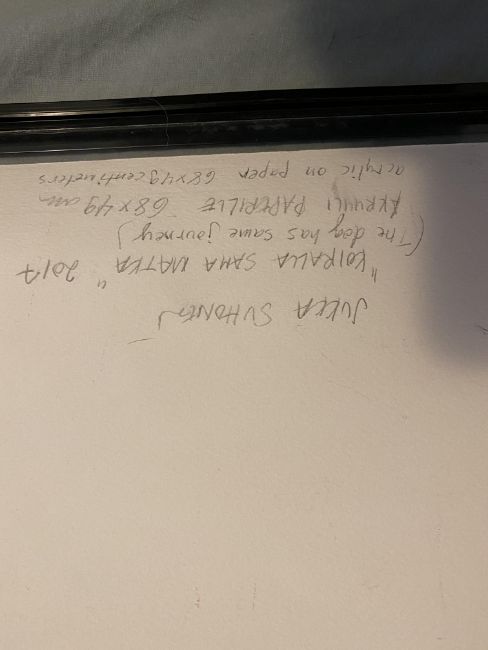 JUKKA SUHONEN
"KOIRALLA SAMA MATKA" 2017
(The dog has same journey)
AKRYYLI PAPERILLE 68x49 cm
acrylic on paper 68x49 centimeters